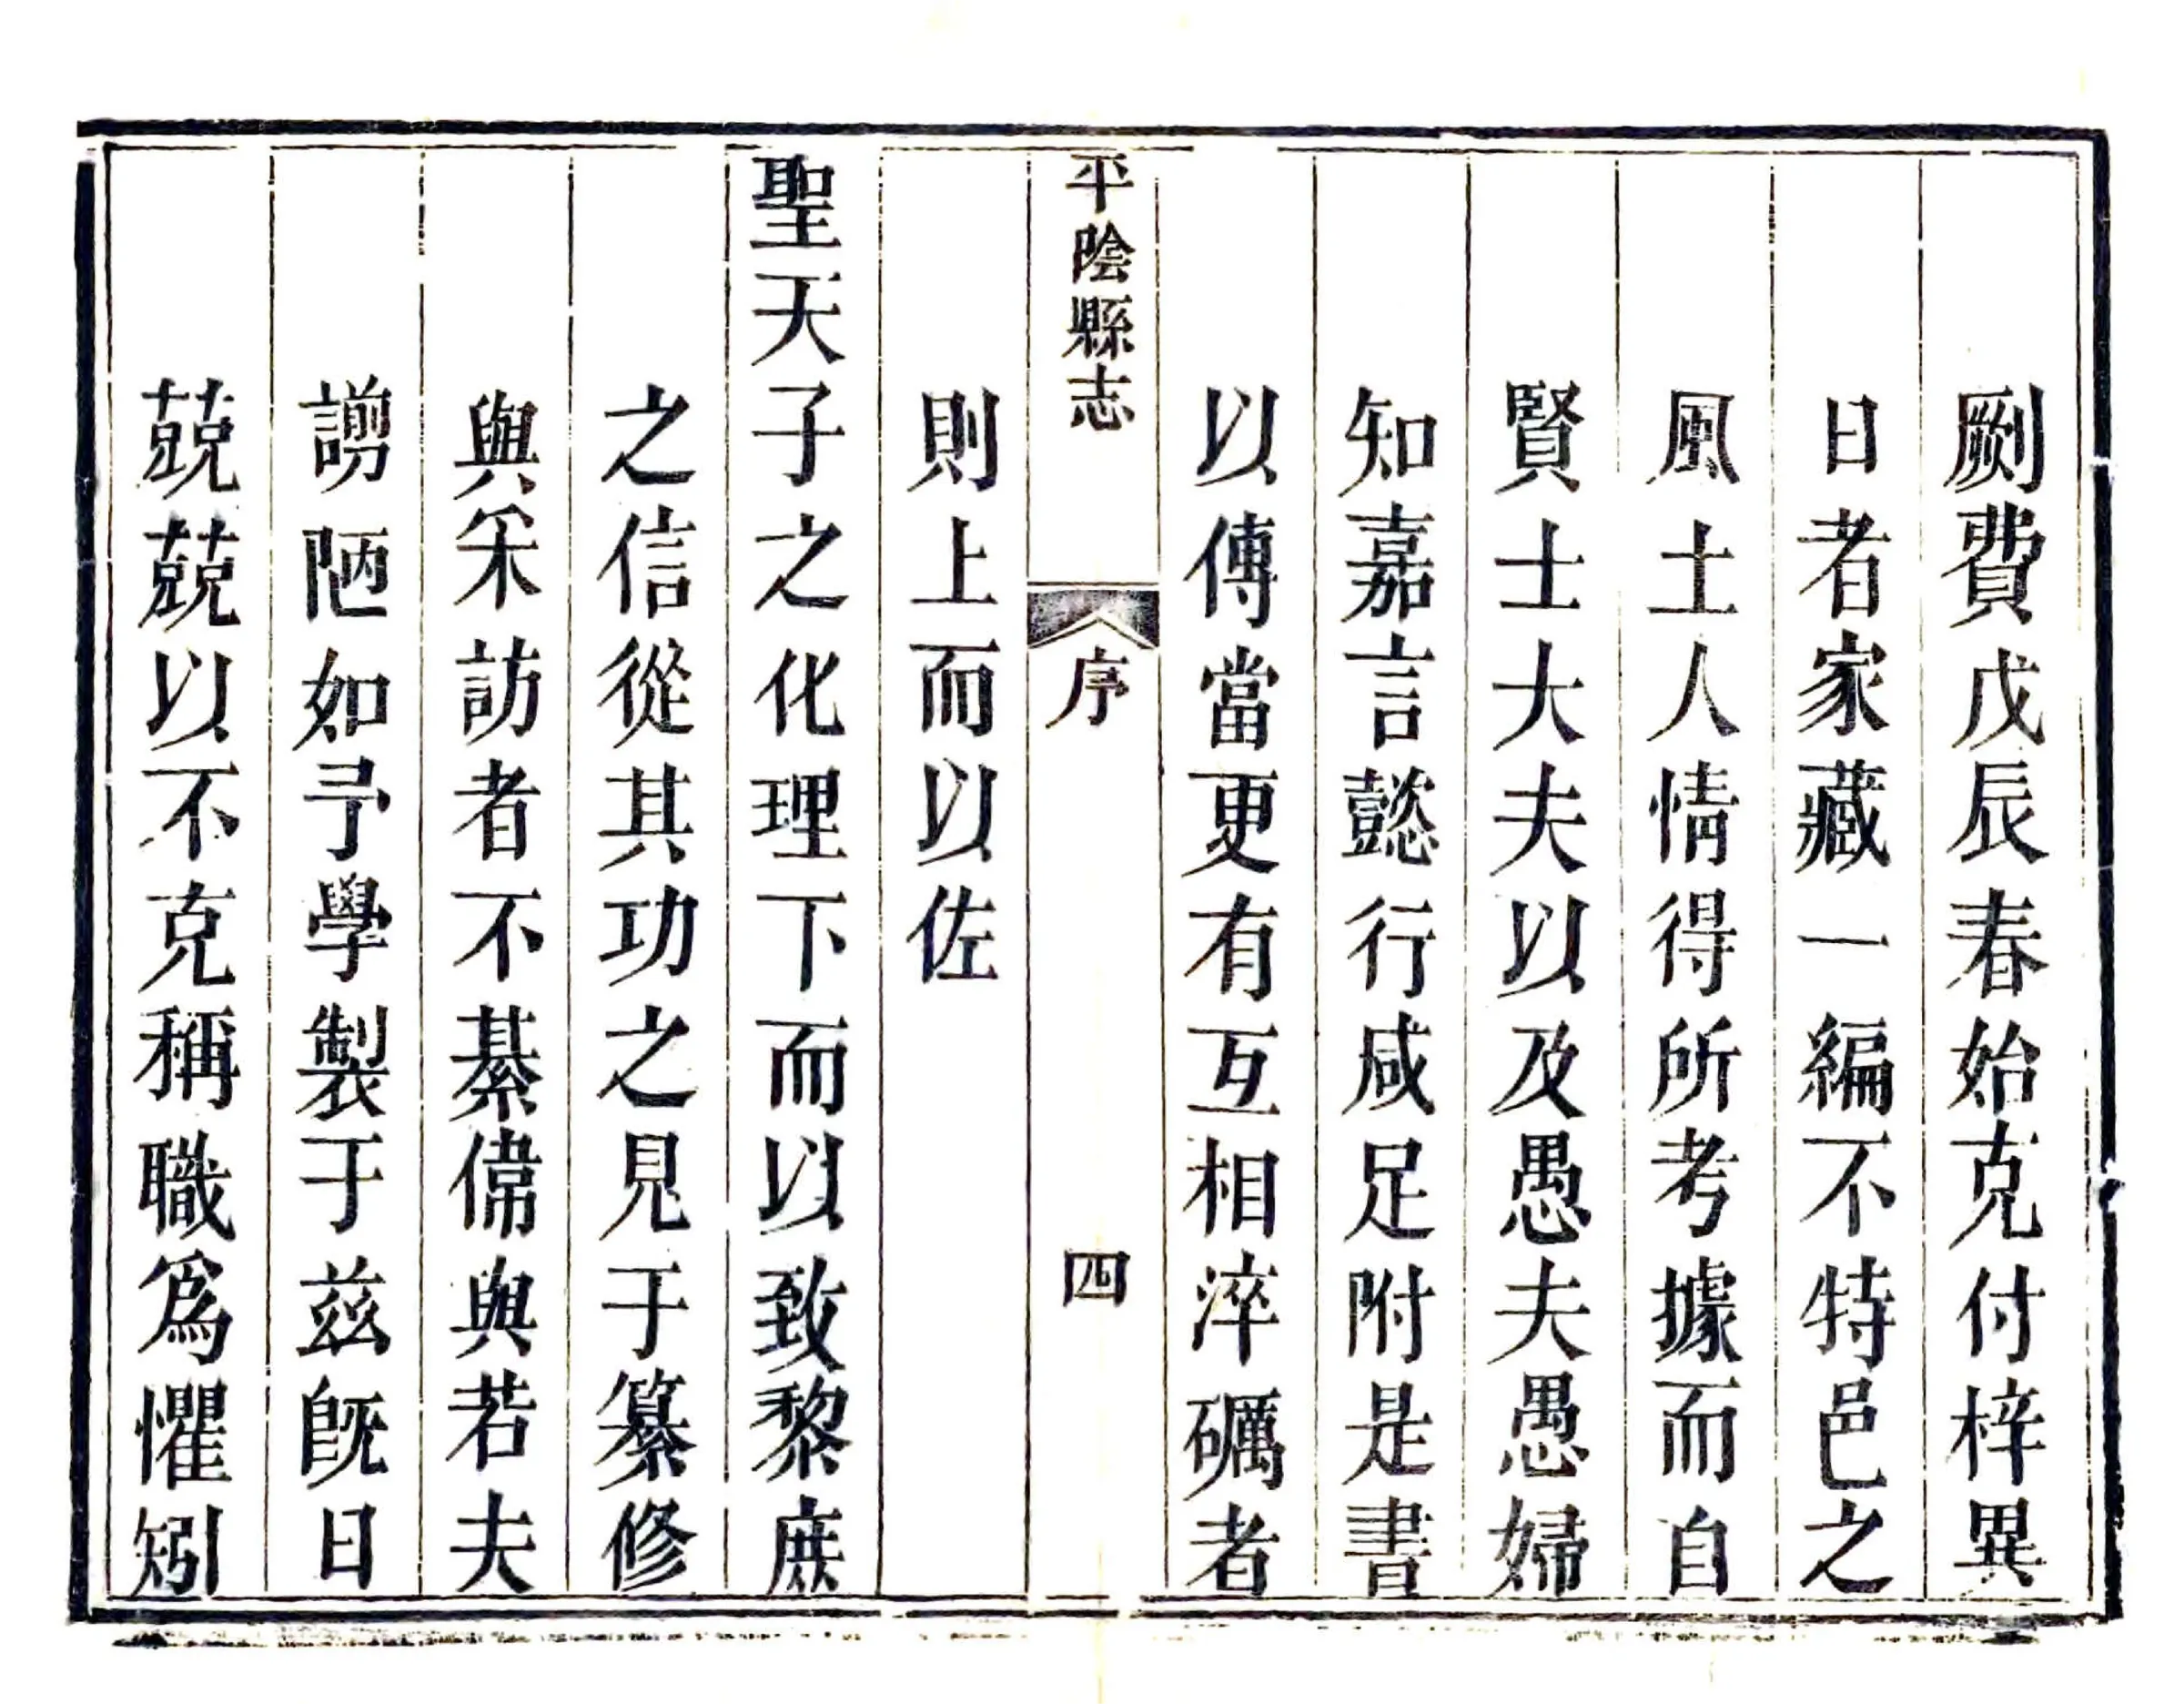 劂費戊辰春始克付梓異
日者家藏一編不特邑之
風土人情得所考據而自
賢士大夫以及愚夫愚婦
知嘉言懿行咸足附是書
以傳當更有互相淬礪者
平陰縣志
序
四
則上而以佐
聖天子之化理下而以致黎庶
之信從其功之見于纂修
與采訪者不綦偉與若夫
謭陋如予學製于茲旣日
兢兢以不克稱職爲懼矧